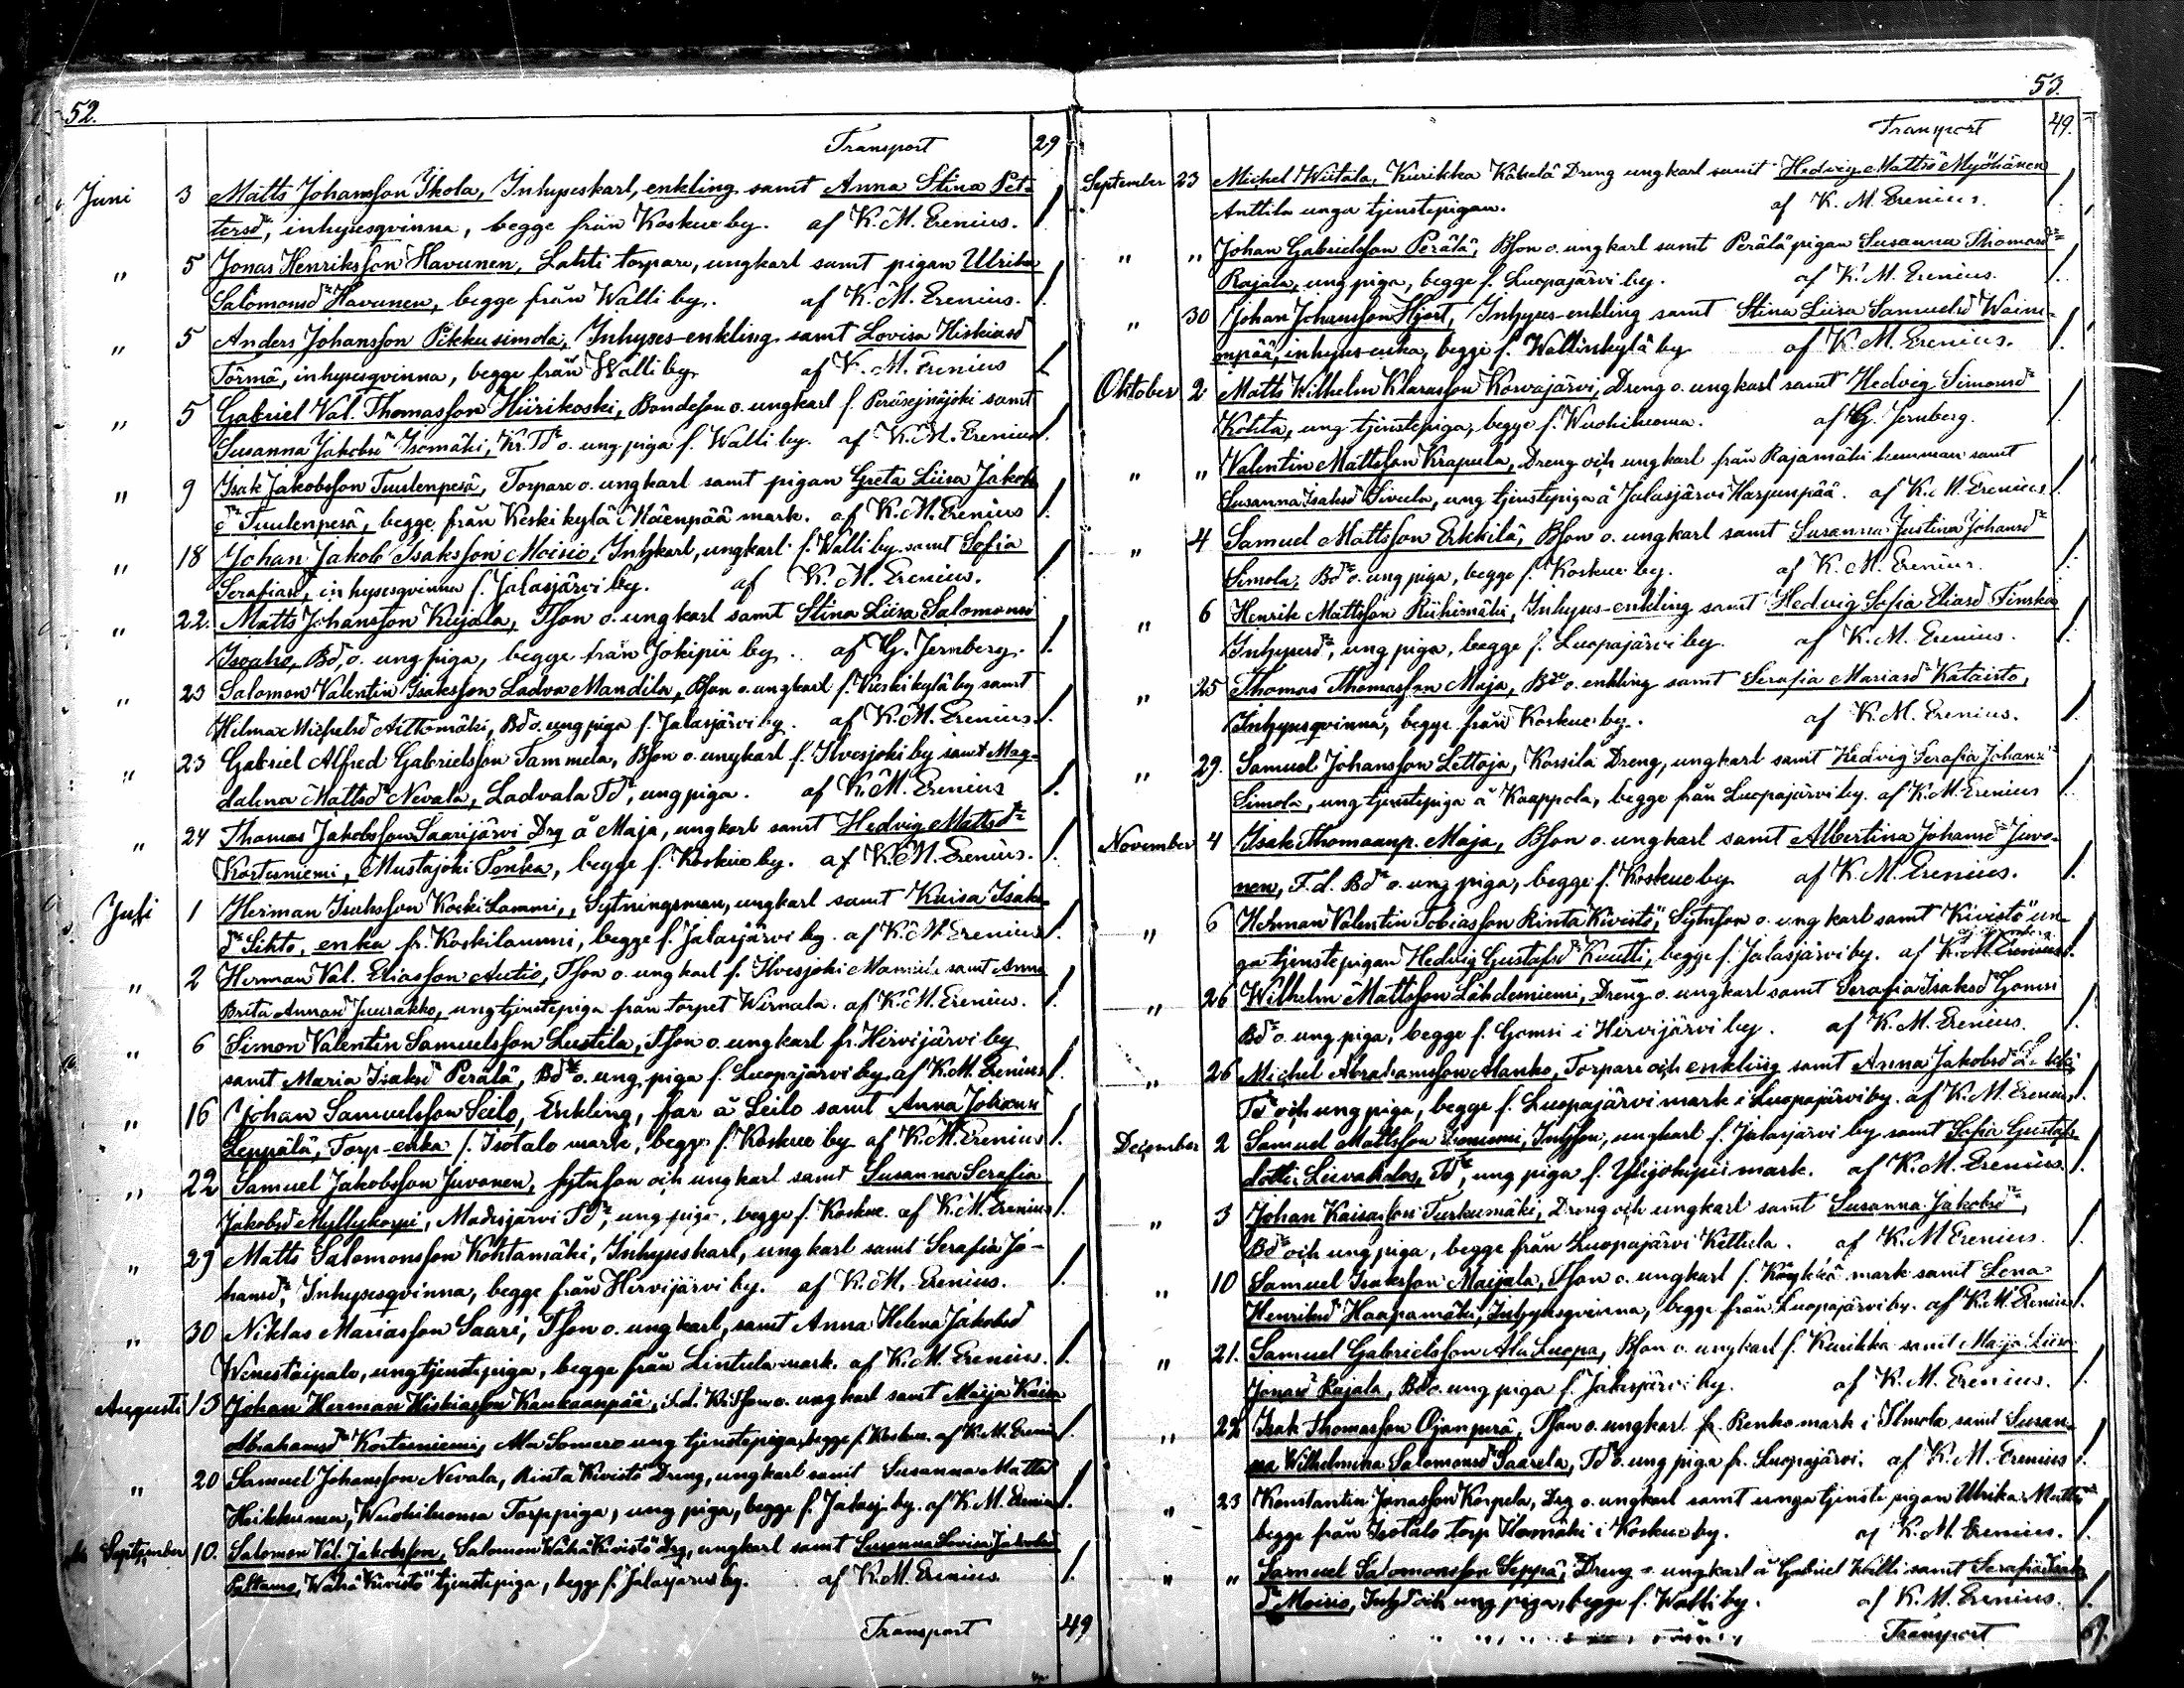 52.
Transport 29
Juni 3 Matts Johansson Ikola, Inhyseskarl, enkling samt Anna Stina Pet-
tersdr, inhysesqvinna, begge från Koskue by. af K. M. Erenius. 1.
" 5 Jonas Henriksson Havunen, Lahti torpare, ungkarl samt pigan Ulrika
Salomonsdr Havunen, begge från Walli by. af K. M. Erenius. 1.
" 5 Anders Johansson Pikkusimola, Inhyses-enkling samt Lovisa Hiskiasdr
Törmä, inhysesqvinna, begge från Walli by. af K. M. Erenius 1.
" 5 Gabriel Val. Thomasson Hiirikoski, Bondeson o. ungkarl f. Peräsejnäjoki samt
Susanna Jakobsdr Isomäki, Kr. Tdr o. ung piga f. Walli by. af K. M. Erenius 1.
" 9 Isak Jakobsson Tuulenpesä, Torpare o. ungkarl samt pigan Greta Liisa Jakobs
dr Tuulenpesä, begge från Keskikylä i Mäenpää mark. af K. M. Erenius 1.
" 18 Johan Jakob Isaksson Moisio, Inhkarl, ungkarl f. Walli by samt Sofia
Serafiasdr, inhysesqvinna f. Jalasjärvi by. af K. M. Erenius. 1.
" 22. Matts Johansson Kujala, Tson o. ungkarl samt Stina Liisa Salomonsd
Isoaho, Bdr o. ung piga, begge från Jokipii by. af G. Jernberg. 1.
" 23 Salomon Valentin Isaksson Ladva Mandila, Bson o. ungkarl f. Keskikylä by samt
Hilma Michelsd Aittomäki, Bd o. ung piga f. Jalasjärvi by. af K. M. Erenius. 1.
" 23 Gabriel Alfred Gabrielsson Tammela, Bson o. ungkarl f. Ilvesjoki by samt Mag-
dalena Mattsdr Nevala, Ladvala Tdr, ung piga. af K. M. Erenius 1.
" 24 Thomas Jakobsson Saarijärvi Drg å Maja, ungkarl samt Hedvig Mattsdr
Kortesniemi, Mustajoki Tenka, begge f. Koskue by. af K. M. Erenius. 1.
Juli 1 Herman Isaksson Koski Lammi, Sytningsman, ungkarl samt Kaisa Isaks-
dr Sihto, enka fr. Koskilammi, begge f. Jalasjärvi by. af K. M. Erenius 1.
" 2 Herman Val. Eliasson Autio, Tson o. ungkarl f. Ilvesjoki samt Anna
Brita Annasd Juurakko, ung tjenstepiga från torpet Wirnala. af K. M. Erenius. 1.
" 6 Simon Valentin Samuelsson Lustila, Tson o. ungkarl fr. Hirvijärvi by
samt Maria Isaksd Perälä, Bdr o. ung piga f. Luopajärvi by. af K. M. Erenius 1.
" 16 Johan Samuelsson Seilo, Enkling, far å Seilo samt Anna Johansd
Leppälä, Torp-enka f. Isotalo mark, begge f. Koskue by af K. M. Erenius 1.
" 22 Samuel Jakobsson Juvonen, Sytnson och ungkarl samt Susanna Serafia
Jakobsd Myllykorpi, Madesjärvi Tdr, ung piga, begge f. Koskue. af K. M. Erenius 1.
" 29 Matts Salomonsson Kohtamäki, Inhyseskarl, ungkarl samt Serafia Jo-
hansdr, Inhysesqvinna, begge från Hirvijärvi by. af K. M. Erenius. 1.
" 30 Niklas Mariasson Saari, Tson o. ungkarl, samt Anna Helena Jakobsd
Wenestaipale, ung tjenstepiga, begge från Lintula mark. af K. M. Erenius. 1.
Augusti 13 Johan Herman Hiskiasson Kankaanpää, f.d. Kr Tson o. ungkarl samt Maija Kaisa
Abrahamsdr Kortesniemi, Ala Somero ung tjenstepiga, begge f. Koskue. af K. M. Erenius 1.
" 20 Samuel Johansson Nevala, Rinta Kivistö Dreng, ungkarl samt Susanna Mattsd
Heikkinen, Wuohiluoma Torppiga, ung piga, begge f. Jalasj. by. af K. M. Erenius 1.
September 10. Salomon Val. Jakobsson, Salomon Wähä Kivistö" Drg, ungkarl samt Susanna Lovisa Jakobsd
Peltamo, Wähä Kivistö" tjenstepiga, begge f. Jalasjärvi by. af K. M. Erenius 1.
Transport 49
53.
Transport 49.
September 23 Michel Wiitala, Kurikka Käkelä Dreng ungkarl samt Hedvig Mattsdr Myöhänen
Anttila unga tjenstepigan. af K. M. Erenius. 1.
" " Johan Gabrielsson Perälä, Bson o. ungkarl samt Perälä pigan Susanna Thomasdr
Rajala, ung piga, begge f. Luopajärvi by. af K. M. Erenius. 1.
" 30 Johan Johansson Hjort, Inhyses-enkling samt Stina Liisa Samuelsd Wain-
ionpää, inhyses-enka, begge f. Wallinkylä by af K. M. Erenius. 1.
Oktober 2 Matts Wilhelm Klarasson Korvajärvi, Dreng o. ungkarl samt Hedvig Simonsdr
Kohta, ung tjenstepiga, begge f. Wuohiluoma. af G. Jernberg. 1.
" " Valentin Mattsson Krapula, Dreng och ungkarl från Rajamäki hemman samt
Susanna Isaksd Sivula, ung tjenstepiga å Jalasjärvi Harjunpää. af K. M. Erenius 1.
" 4 Samuel Mattsson Erkkilä, Bson o. ungkarl samt Susanna Justina Johansdr
Simola, Bdr o. ung piga, begge f. Koskue by. af K. M. Erenius. 1.
" 6 Henrik Mattsson Riihimäki, Inhyses-enkling samt Hedvig Sofia Eliasd Finska
Inhysesdr, ung piga, begge f. Luopajärvi by. af K. M. Erenius. 1.
" 25 Thomas Thomasson Maja, Bde o. enkling samt Serafia Mariasd Kataisto,
Inhysesqvinna, begge från Koskue by. af K. M. Erenius. 1.
" 29. Samuel Johansson Lettoja, Kossila Dreng, ungkarl samt Hedvig Serafia Johansd
Simola, ung tjenstepiga å Kaappola, begge från Luopajärvi by. af K. M. Erenius 1.
November 4 Isak Thomasp. Maja, Bson o. ungkarl samt Albertina Johansd Juvo-
nen, F.d. Bdr o. ung piga, begge f. Koskue by af K. M. Erenius. 1.
" 6 Herman Valentin Tobiasson Rinta Kivistö", Sytnson o. ungkarl samt Kivistö" un-
ga tjenstepigan Hedvig Gustafsd Knutti, begge f. Jalasjärvi by. af K. M. Erenius 1.
" 26 Wilhelm Mattsson Lähdesniemi, Dreng o. ungkarl samt Serafia Isaksd Gomsi
Bd o. ung piga, begge f. Gomsi i Hirvijärvi by. af K. M. Erenius. 1.
" 26 Michel Abrahamsson Alanko, Torpare och enkling samt Anna Jakobsd
Tdr och ung piga, begge f. Luopajärvi mark i Luopajärvi by. af K. M. Erenius 1.
December 2 Samuel Mattsson Inhson, ungkarl f. Jalasjärvi by samt Sofia Gustafs-
dotter Liivakdas, Td, ung piga f. Yliojokipii mark. af K. M. Erenius. 1.
" 3 Johan Kaisasson Turkumäki, Dreng och ungkarl samt Susanna Jakobsdr,
Bdr och ung piga, begge från Luopajärvi Kettula. af K. M Erenius. 1.
" 10 Samuel Isaksson Maijala, Tson o. ungkarl f. mark samt Lena
Henriksd Haapamäki, Inhysesqvinna, begge från Luopajärvi by. af K. M. Erenius 1.
" 21. Samuel Gabrielsson Ala Luopa, Bson o. ungkarl f. Kurikka samt Maija Liisa
Jonasd Rajala, Bd o. ung piga f. Jalasjärvi by. af K. M. Erenius. 1.
" 22 Isak Thomasson Ojanperä, Tson o. ungkarl fr. Renko mark i Ilmola samt Susan-
na Wilhelmina Salomonsd Saarela, Tdr o. ung piga fr. Luopajärvi. af K. M. Erenius 1.
" 23 Konstantin Jonasson Korpela, Drg o. ungkarl samt unga tjenste pigan Ulrika Mattsdr
begge från Isotalo torp i Koskue by. af K. M. Erenius. 1.
" " Samuel Salomonsson Seppä, Dreng o. ungkarl å Gabriel Walli samt Serafia Isaks-
dr Moisio, Inhdr och ung piga, begge f. Walli by. af K. M. Erenius. 1.
Transport 67.